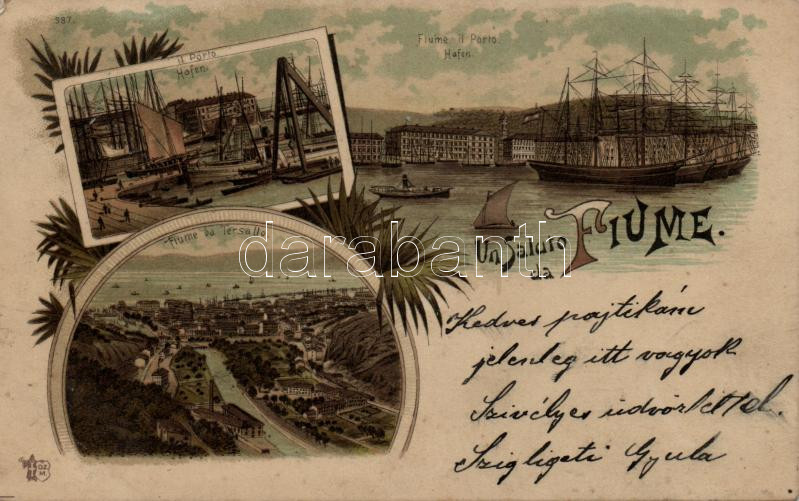 387.
il Porto
Hafen.
Fiume il Porto
Hafen.
Fiume da Tersatto
darabanth
Un Saluto
da FIUME.
Kedves pajtikám
jelenleg itt vagyok
Szivélyes üdvözlettel.
Szigligeti Gyula